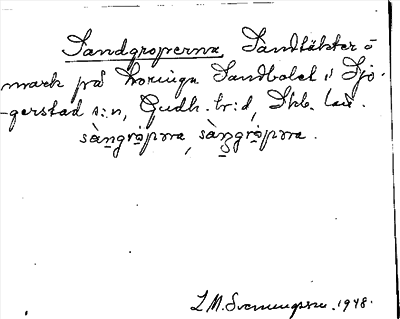 Sandgroperna, Sandtäkter å
mark på Kroninga Sandbolet i Sjö-
gerstad s:n, Gudh. hr:d, Skb. län.
sàngròpᴐrna, sàngròpᴐrna.
L M. Svenungsson. 1948.